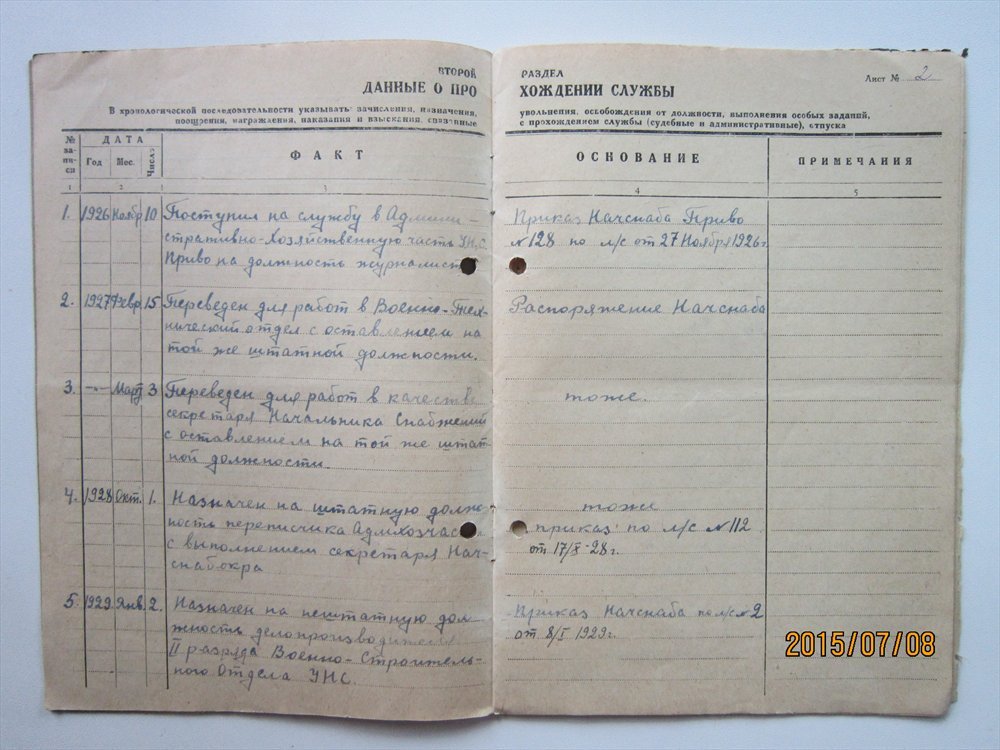 ВТОРОЙ РАЗДЕЛ
Лист № 2
ДАННЫЕ О ПРОХОЖДЕНИИ СЛУЖБЫ
В хронологической последовательности указывать: зачисления, назначения, увольнения, освобождения от должности, выполнения особых заданий,
поощрения, награждения, наказания и взыскания, связанные с прохождением службы (судебные и административные), отпуска
№ за- пи- си
ДАТА
Год Мес. Число
ФАКТ
ОСНОВАНИЕ
ПРИМЕЧАНИЯ
1 2 3 4 5
1. 1926 Ноябр 10 Поступил на службу в Админи-
стративно-Хозяйственную часть УНС.
Приво на должность журналист
Приказ Начснаба Приво
№128 по л/с от 27 Ноября 1926г.
2. 1927 Февр. 15 Переведен для работ в Военно-Тех-
нический отдел с оставлением на
той же штатной должности.
Распоряжение Начснаба
3. -"- Март 3 Переведен для работ в качестве
секретаря Начальника Снабжений
с оставлением на той же штат-
ной должности.
тоже.
4. 1928 Окт. 1. Назначен на штатную долж
ность переписчика Админхозчас
с выполнением секретаря Нач-
снабокра
тоже
приказ по л/с №112
от 17/X-28г.
5. 1929 Янв. 2. Назначен на нештатную дол
жность делопроизводителя
II разряда Военно-Строитель-
ного Отдела УНС.
Приказ Начснаба по л/с №2
от 8/I 1929г.
2015/07/08